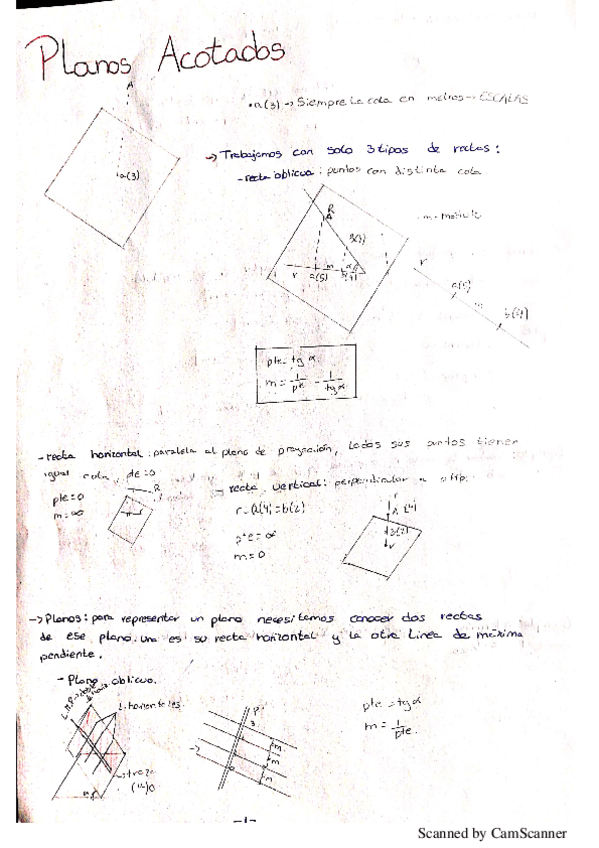 Planos Acotados
A
a(3)
• a(3) → Siempre la cota en metros → ESCALAS
→ Trabajamos con solo 3 tipos de rectas:
- recta oblicua: puntos con distinta cota
R
A
m = modulo
r
m
a(5)
r
a(5)
m
b(4)
pte = tg α
m = 1/pte = 1/tg α
- recta horizontal: paralela al plano de proyección, todos sus puntos tienen
igual cota, pte = 0
pte = 0
m = ∞
R
→ recta vertical: perpendicular a
r = a(4) = b(2)
pte = ∝
m = 0
r
A (4)
B(2)
r
→ Planos: para representar un plano necesitamos conocer dos rectas
de ese plano. Una es su recta horizontal y la otra Linea de máxima
pendiente.
- Plano oblicuo.
L. horizontales
traza
P
3
m
m
m
pte = tg α
m = 1/pte.
-1-
Scanned by CamScanner